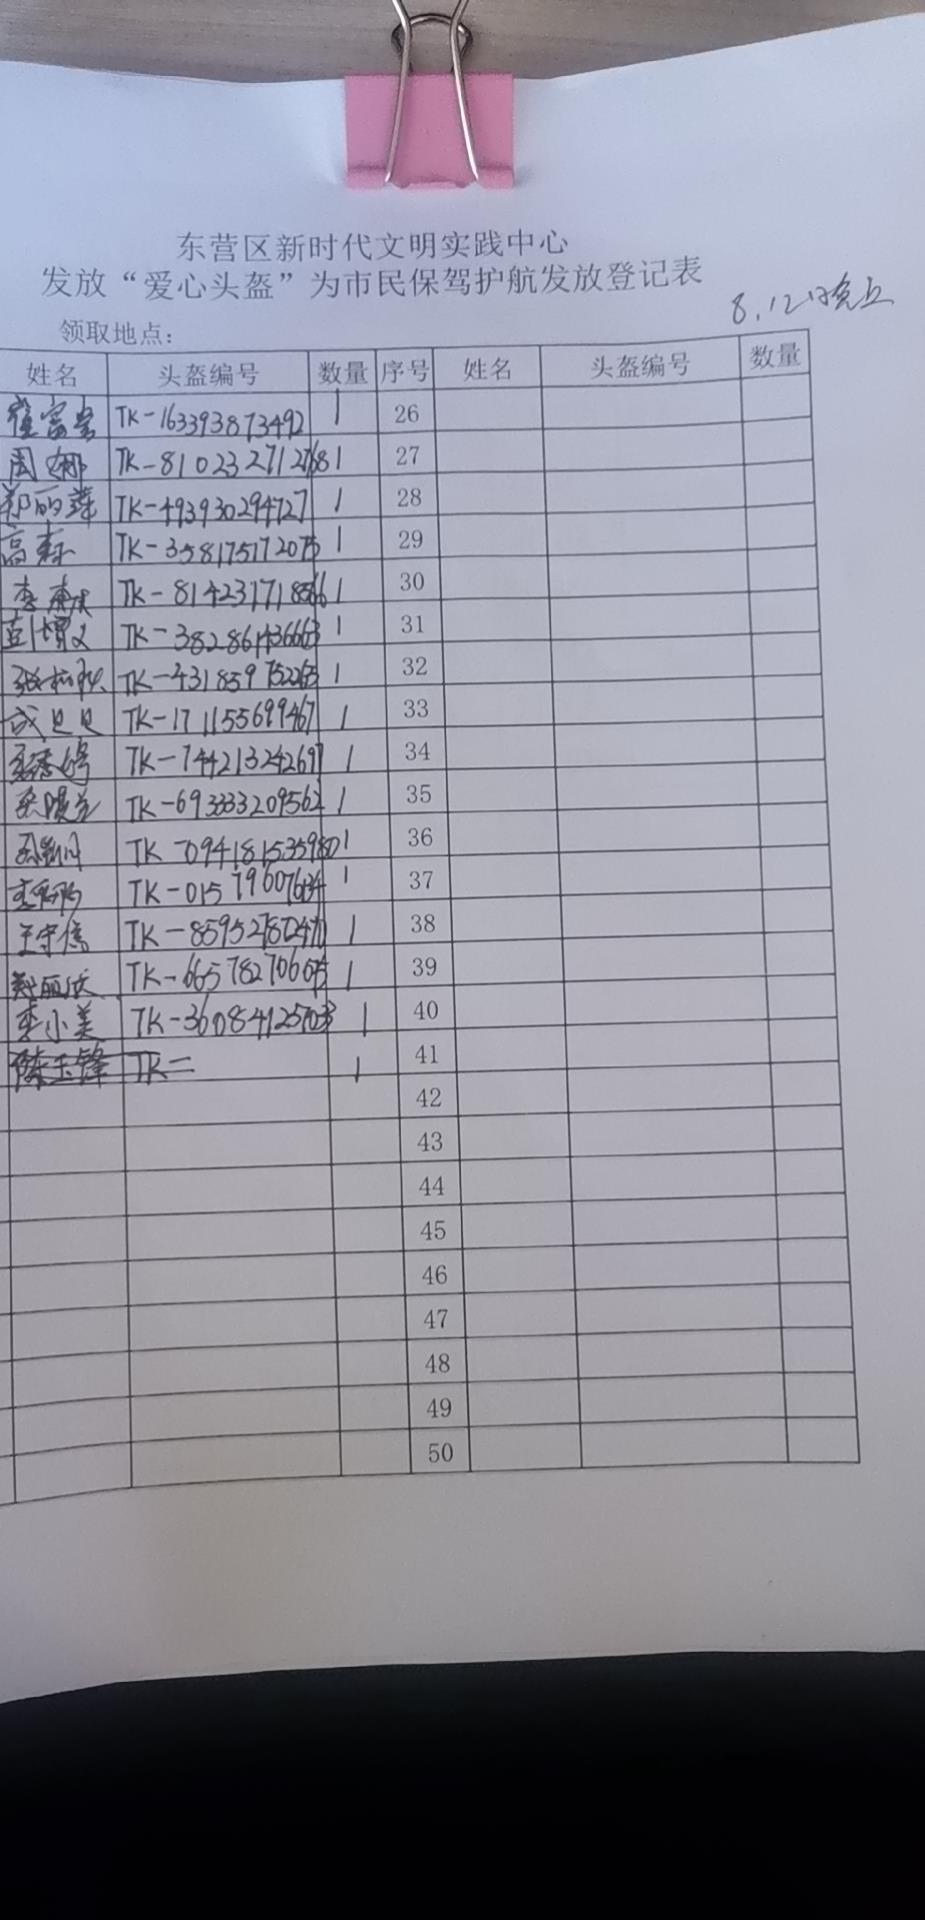 东营区新时代文明实践中心
发放“爱心头盔”为市民保驾护航发放登记表
8.12日
领取地点：
姓名 头盔编号 数量 序号 姓名 头盔编号 数量
崔富贵 TK-163393873492 1 26
周娜 TK-810232712768 1 27
郑丽萍 TK-493930294727 1 28
高森 TK-358175172075 1 29
李 TK-814231718566 1 30
彭 TK-382861436663 1 31
张 TK-431859752265 1 32
成旦旦 TK-171155699467 1 33
TK-744213242697 1 34
TK-693333209562 1 35
TK-094181535980 1 36
TK-015796076 1 37
王守信 TK-859527802470 1 38
郑丽欣 TK-665782706675 1 39
李小美 TK-360841257033 1 40
陈玉锋 TK- 1 41
42
43
44
45
46
47
48
49
50